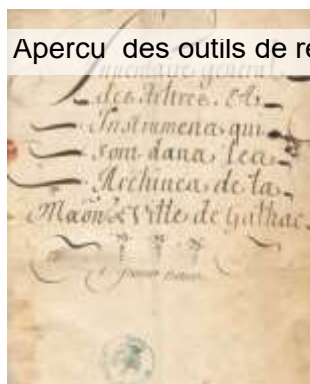 Apercu  des outils de re
Inventaire general
des tiltres Et
Instrumens qui
sont dans les
Archiues de la
Maõn de Ville de Galhac